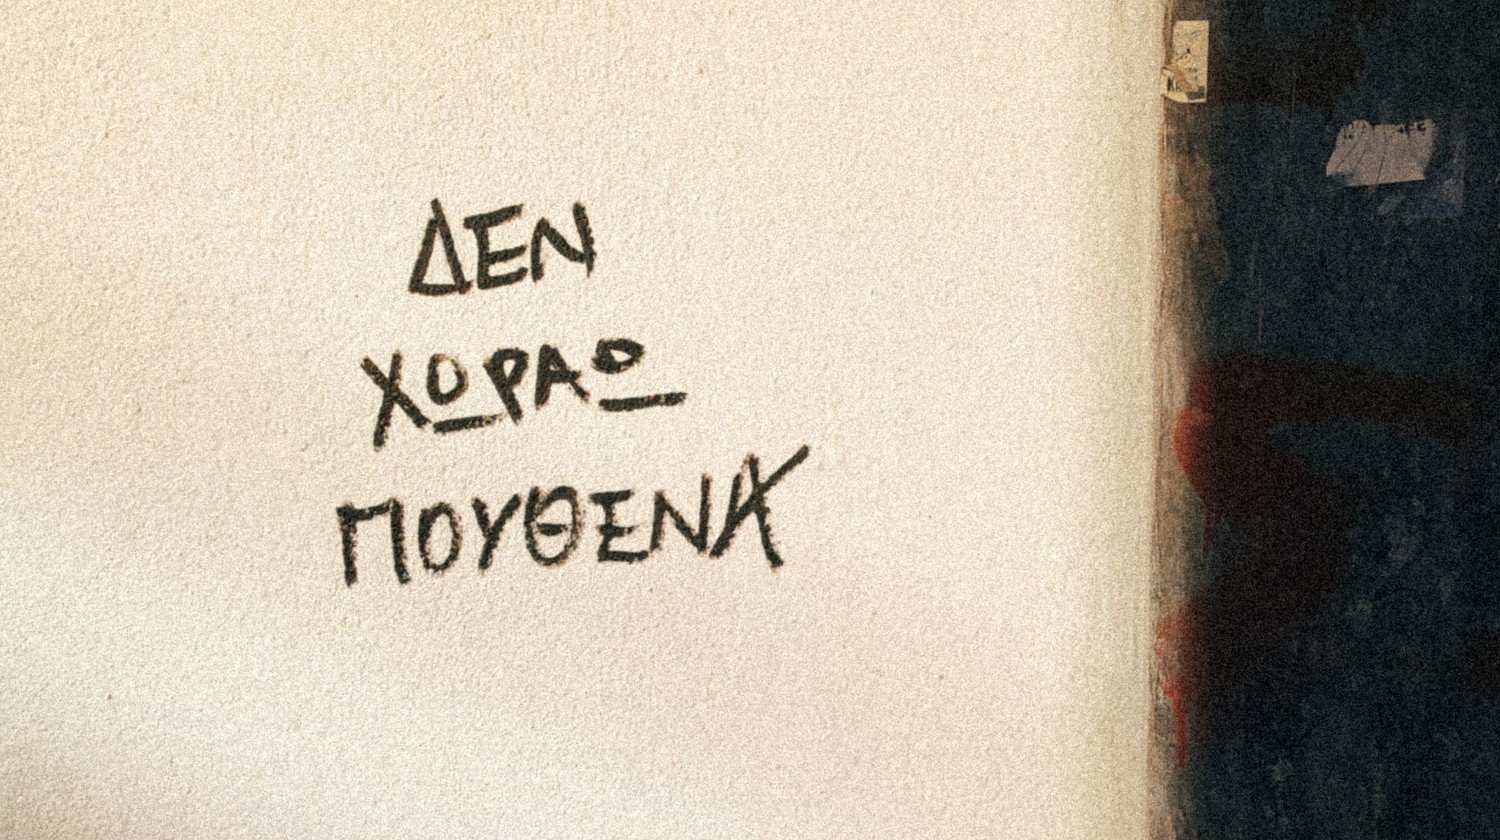 ΔΕΝ
ΧΩΡΑΩ
ΠΟΥΘΕΝΑ